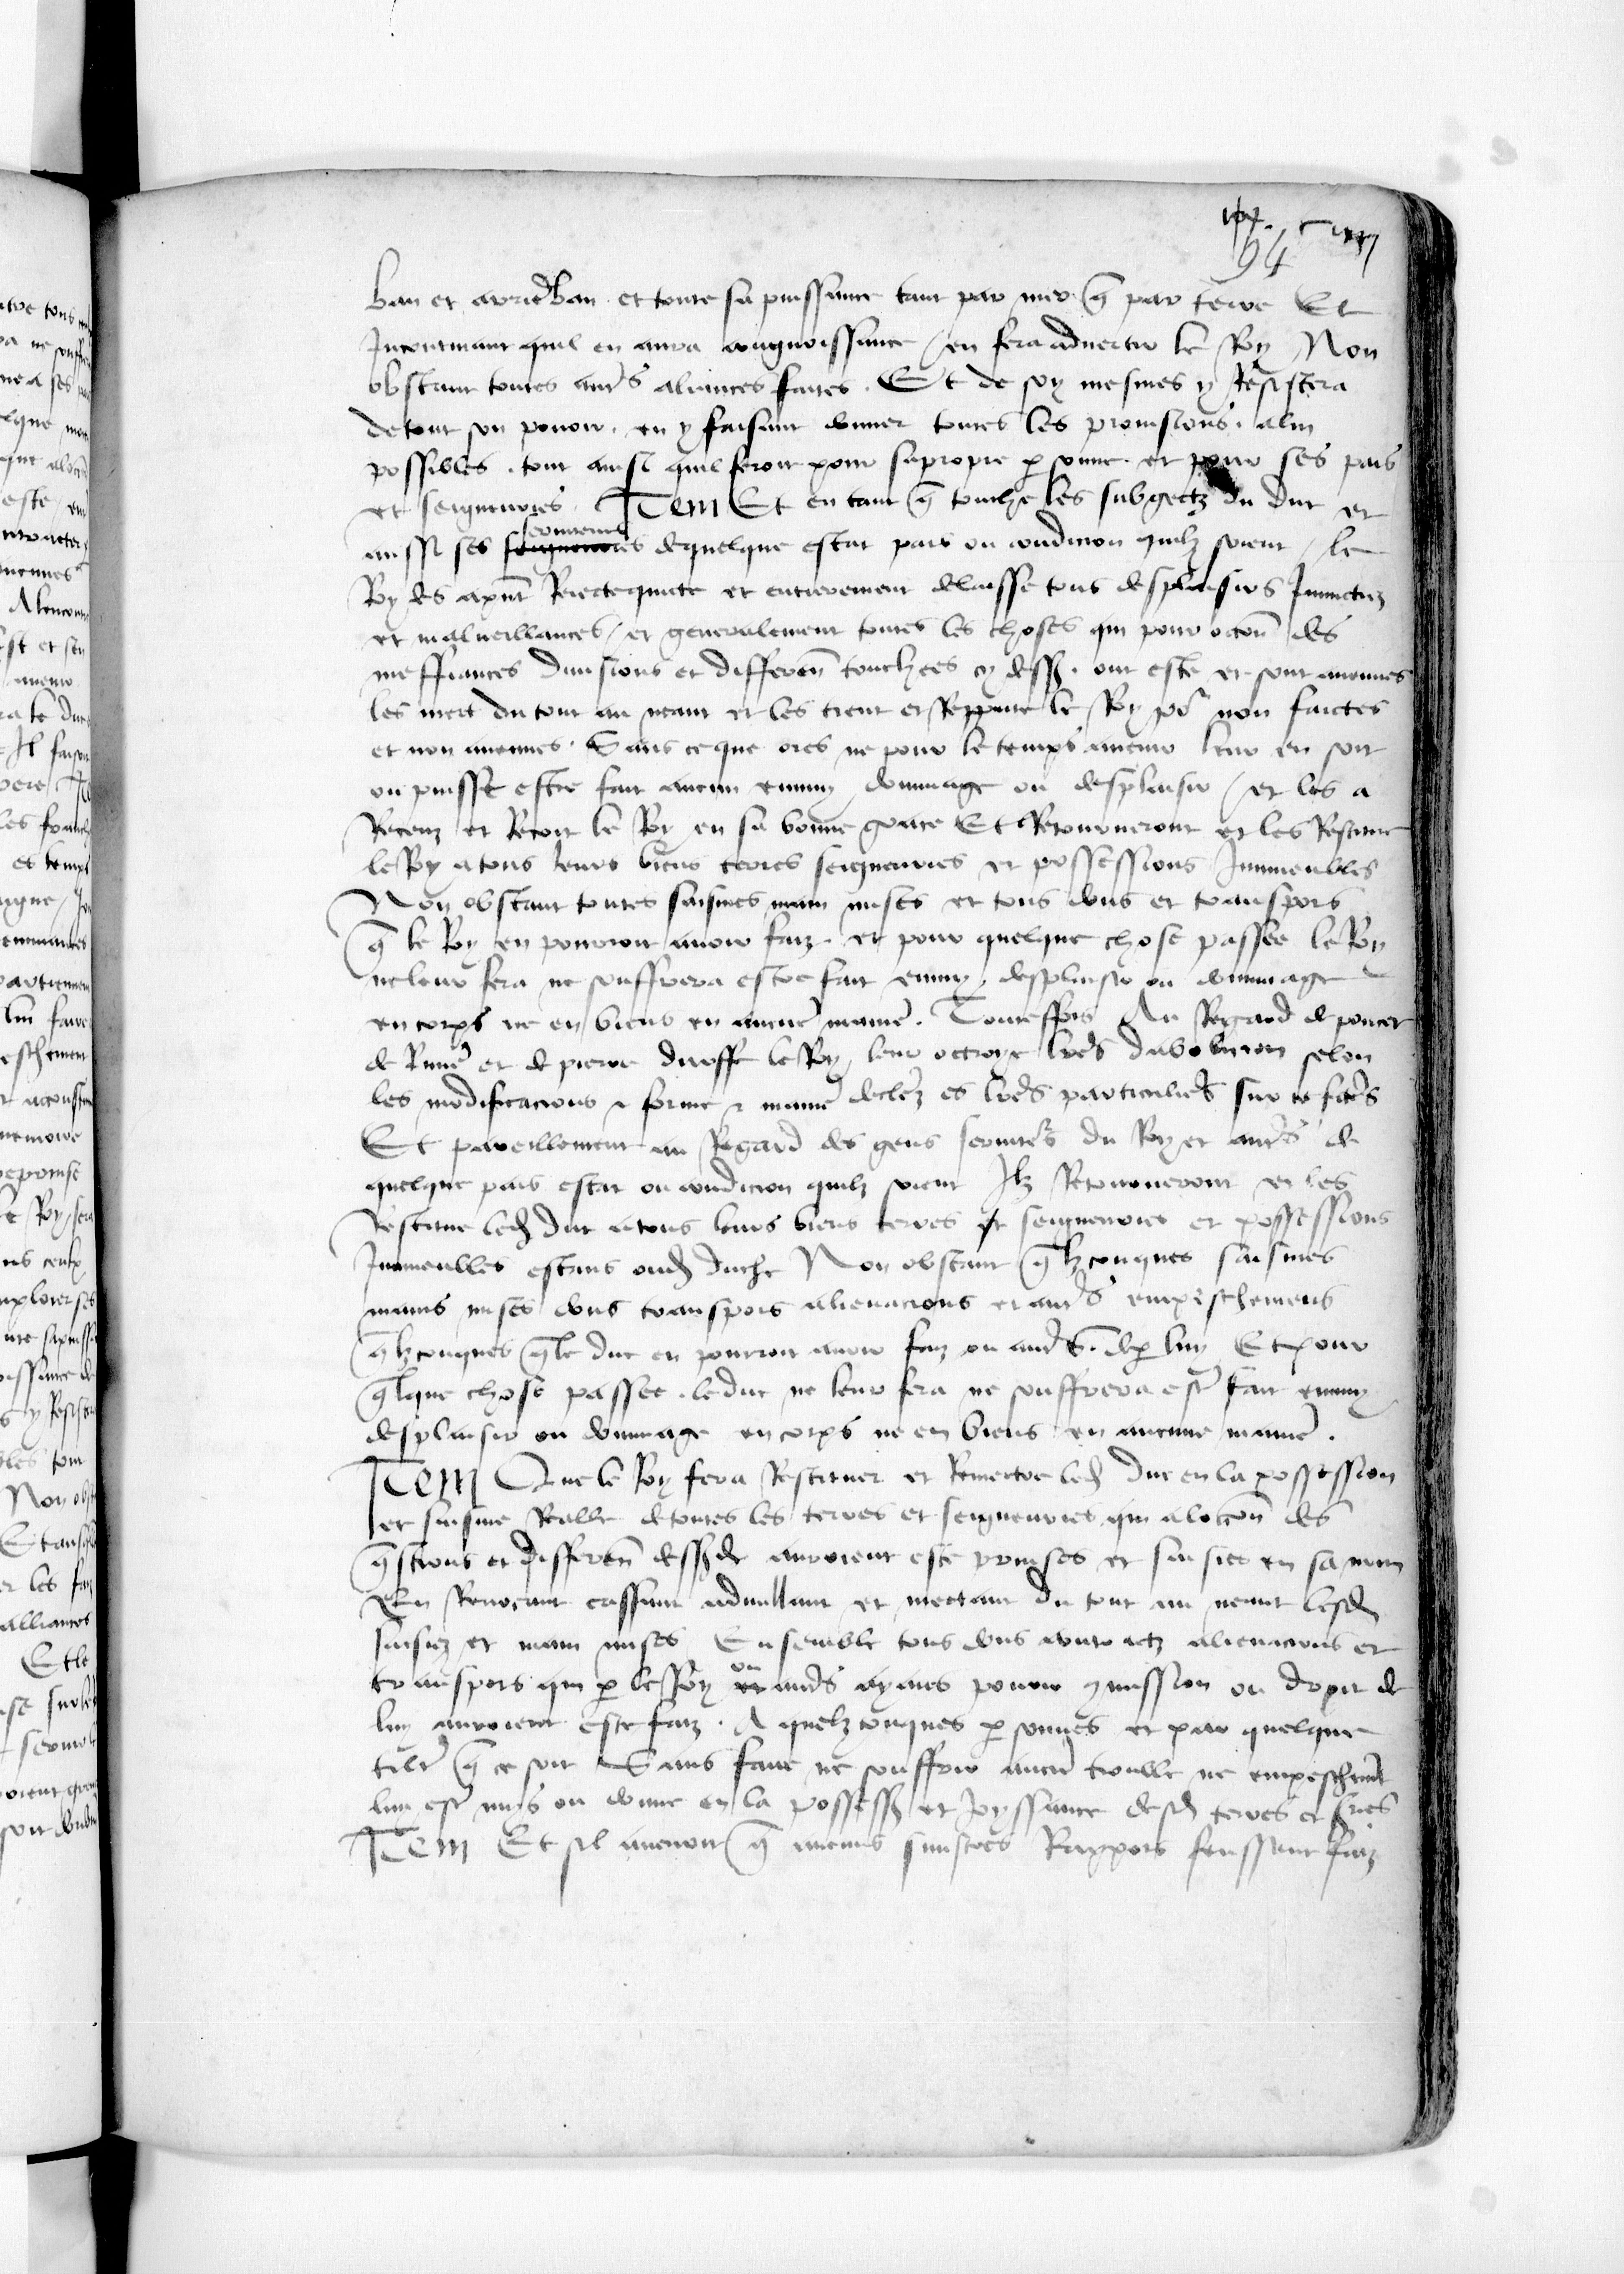 94
ban et arrie ban et toute sa puissance tant par mer q par terre Et
Incontinant quil en aura congnoissance / en fera advertir le Roy Non
obstant toutes autrs aliances faictes . Et de soy mesmes y Resistera
de tout son povoir . en y faisant donner toutes les provisions . a luy
possibles . tout ainsi quil feroit pour sa propre p sonne . et pour ses pais
et seigneuries . Item Et en tant q touche les subgectz du duc et
aussi ses serviteurs de quelque estat pais ou condicion quilz soient / le
Roy des apnt Reiecte quicte et entierement delaisse tous desplaisirs Inimitiez
et malveillances / et generalement toutes les choses qui pour occon des
meffiances divisions et differen touchees cy dess . ont este et sont avenues
les mect du tout au neant et les tient et Reppute le Roy po non faictes
et non avenues . Sans ce que ores ne pour le temps avenir leur en soit
ou puisse estre fait aucun ennuy dommage ou desplaisir / et les a
Receuz et Recoit le Roy en sa bonne grace Et Retourneront et les Restitue
le Roy a tous leurs biens terres seigneuries et possessions Immeubles
Non obstant toutes saisines main mises et tous dons et transpors
q le Roy en pourroit avoir faiz . et pour quelque chose passee le Roy
ne leur fera ne souffrera estre fait ennuy . desplaisir ou dommage
en corps ne en biens en aucune manie . Touteffois Au Regard de poncet
de Riviere et de pierre le Roy / leur octroye lres dabolucion selon
les modificacions & forme & manie declez es lres particulieres sur ce fctes
Et pareillement au Regard des gens serviters du Roy et autrs de
quelque pais estat ou condicion quilz soient Ilz Retourneront et les
Restitue led duc a tous leurs biens terres et seigneuries et possessions
Immeubles estans oud duche Non obstant qlzconques saisines
mains mises dons transpors alienacions et autrs empeschemens
qlzconques q le duc en pourroit avoir faiz ou autrs . de p luy Et pour
qlque chose passee . le duc ne leur fera ne souffrera est fait ennuy
desplaisir ou dommage en corps ne en biens en aucune manie .
Item Que le Roy fera Restituer et Remectre led duc en la possession
et saisine Realle de toutes les terres et seigneuries qui a loccon des
qstions et differen dess d auroient este prinses et saisies en sa main
En Revocant cassant adnullant et mectant du tout au neant lesd
saisies et main mises Ensemble tous dons contractz alienacions et
transpors qui p le Roy ou autrs ayans povoir commission ou droit de
luy auroient este faiz . A quelzconques p sonnes et par quelque
tiltre q ce soit Sans faire ne souffrir aucun trouble ne empeschemet
luy est mis ou donne en la possess et Joyssance desd terres et sries
Item Et sil avenoit q aucuns sinistres Rappors feussent faiz